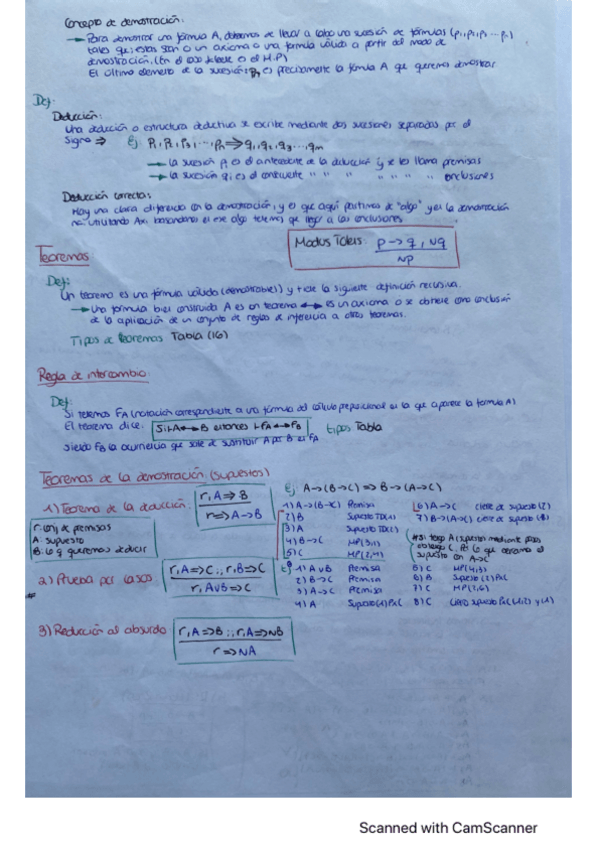 Concepto de demostración:
→ Para demostrar una fórmula A, debemos de llevar a cabo una sucesión de fórmulas (p₁,p₂,p₃ ... pₙ)
tales que; estas son o un axioma o una fórmula válida a partir del modo de
demostración. (En el caso es el M.P)
El último elemento de la sucesión; pₙ es precisamente la fórmula A que queremos demostrar
Def:
Deducción:
Una deducción o estructura deductiva se escribe mediante dos sucesiones separadas por el
signo ⇒ Ej P₁, P₂, P₃, ..., Pₙ ⇒ q₁, q₂, q₃, ..., qₘ
→ La sucesión pᵢ es el antecedente de la deducción y se les llama premisas
→ La sucesión qᵢ es el consecuente " " " " " " conclusiones
Deducción correcta:
Hay una clara diferencia con la demostración, y es que aquí partimos de "algo" y en la demostración
no utilizando Axi. basandonos en ese algo tenemos que llegar a las conclusiones.
Modus Tolens: p → q, ¬q
¬p
Teoremas
Def:
Un teorema es una fórmula válida (demostrables) y tiene la siguiente definición recursiva.
→ Una fórmula bien construida A es un teorema ↔ es un axioma o se obtiene como conclusión
de la aplicación de un conjunto de reglas de inferencia a otros teoremas.
Tipos de teoremas Tabla (16)
Regla de intercambio:
Def:
Si tenemos FA (notación correspondiente a una fórmula del cálculo proposicional en la que aparece la formula A)
El teorema dice: Si ⊢A↔B entonces ⊢FA↔FB tipos Tabla
Siendo FB la ocurrencia que sale de sustituir A por B en FA
Teoremas de la demostración (supuestos)
1) Teorema de la deducción: Γ, A ⇒ B
Γ ⇒ A → B
Γ: conj de premisas
A: supuesto
B: lo q queremos deducir
Ej: A→(B→C) ⇒ B→(A→C)
1) A→(B→C) Premisa
2) B Supuesto TD(1)
3) A Supuesto TD(2)
4) B→C MP(3,1)
5) C MP(2,4)
6) A→C cierre de supuesto (2)
7) B→(A→C) cierre de supuesto (1)
2) Prueba por casos Γ, A ⇒ C ; Γ, B ⇒ C
Γ, A∨B ⇒ C
Ej 1) A∨B Premisa
2) B→C Premisa
3) A→C Premisa
4) A Supuesto (1) PxC
5) C MP(4,3)
6) B Supuesto (2) PxC
7) C MP(2,6)
3) Reducción al absurdo Γ, A ⇒ B ; Γ, A ⇒ ¬B
Γ ⇒ ¬A
Scanned with CamScanner